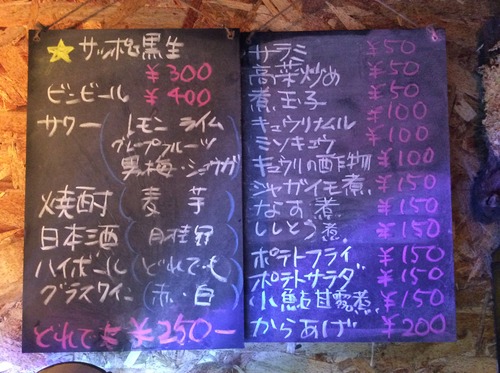 サッポロ黒生
¥300
ビンビール ¥400
サワー(レモン ライム
グレープフルーツ
男梅・ショウガ)
焼酎(麦 芋)
日本酒(月桂冠)
ハイボール(どれでも)
グラスワイン(赤・白)
どれでも ¥250ー
サラミ ¥50
高菜炒め ¥50
煮玉子 ¥50
キュウリナムル ¥100
ミソキュウ ¥100
キュウリの酢作物 ¥100
ジャガイモ煮 ¥150
なす煮 ¥150
ししとう煮 ¥150
ポテトフライ ¥150
ポテトサラダ ¥150
小魚甘露煮 ¥150
からあげ ¥200